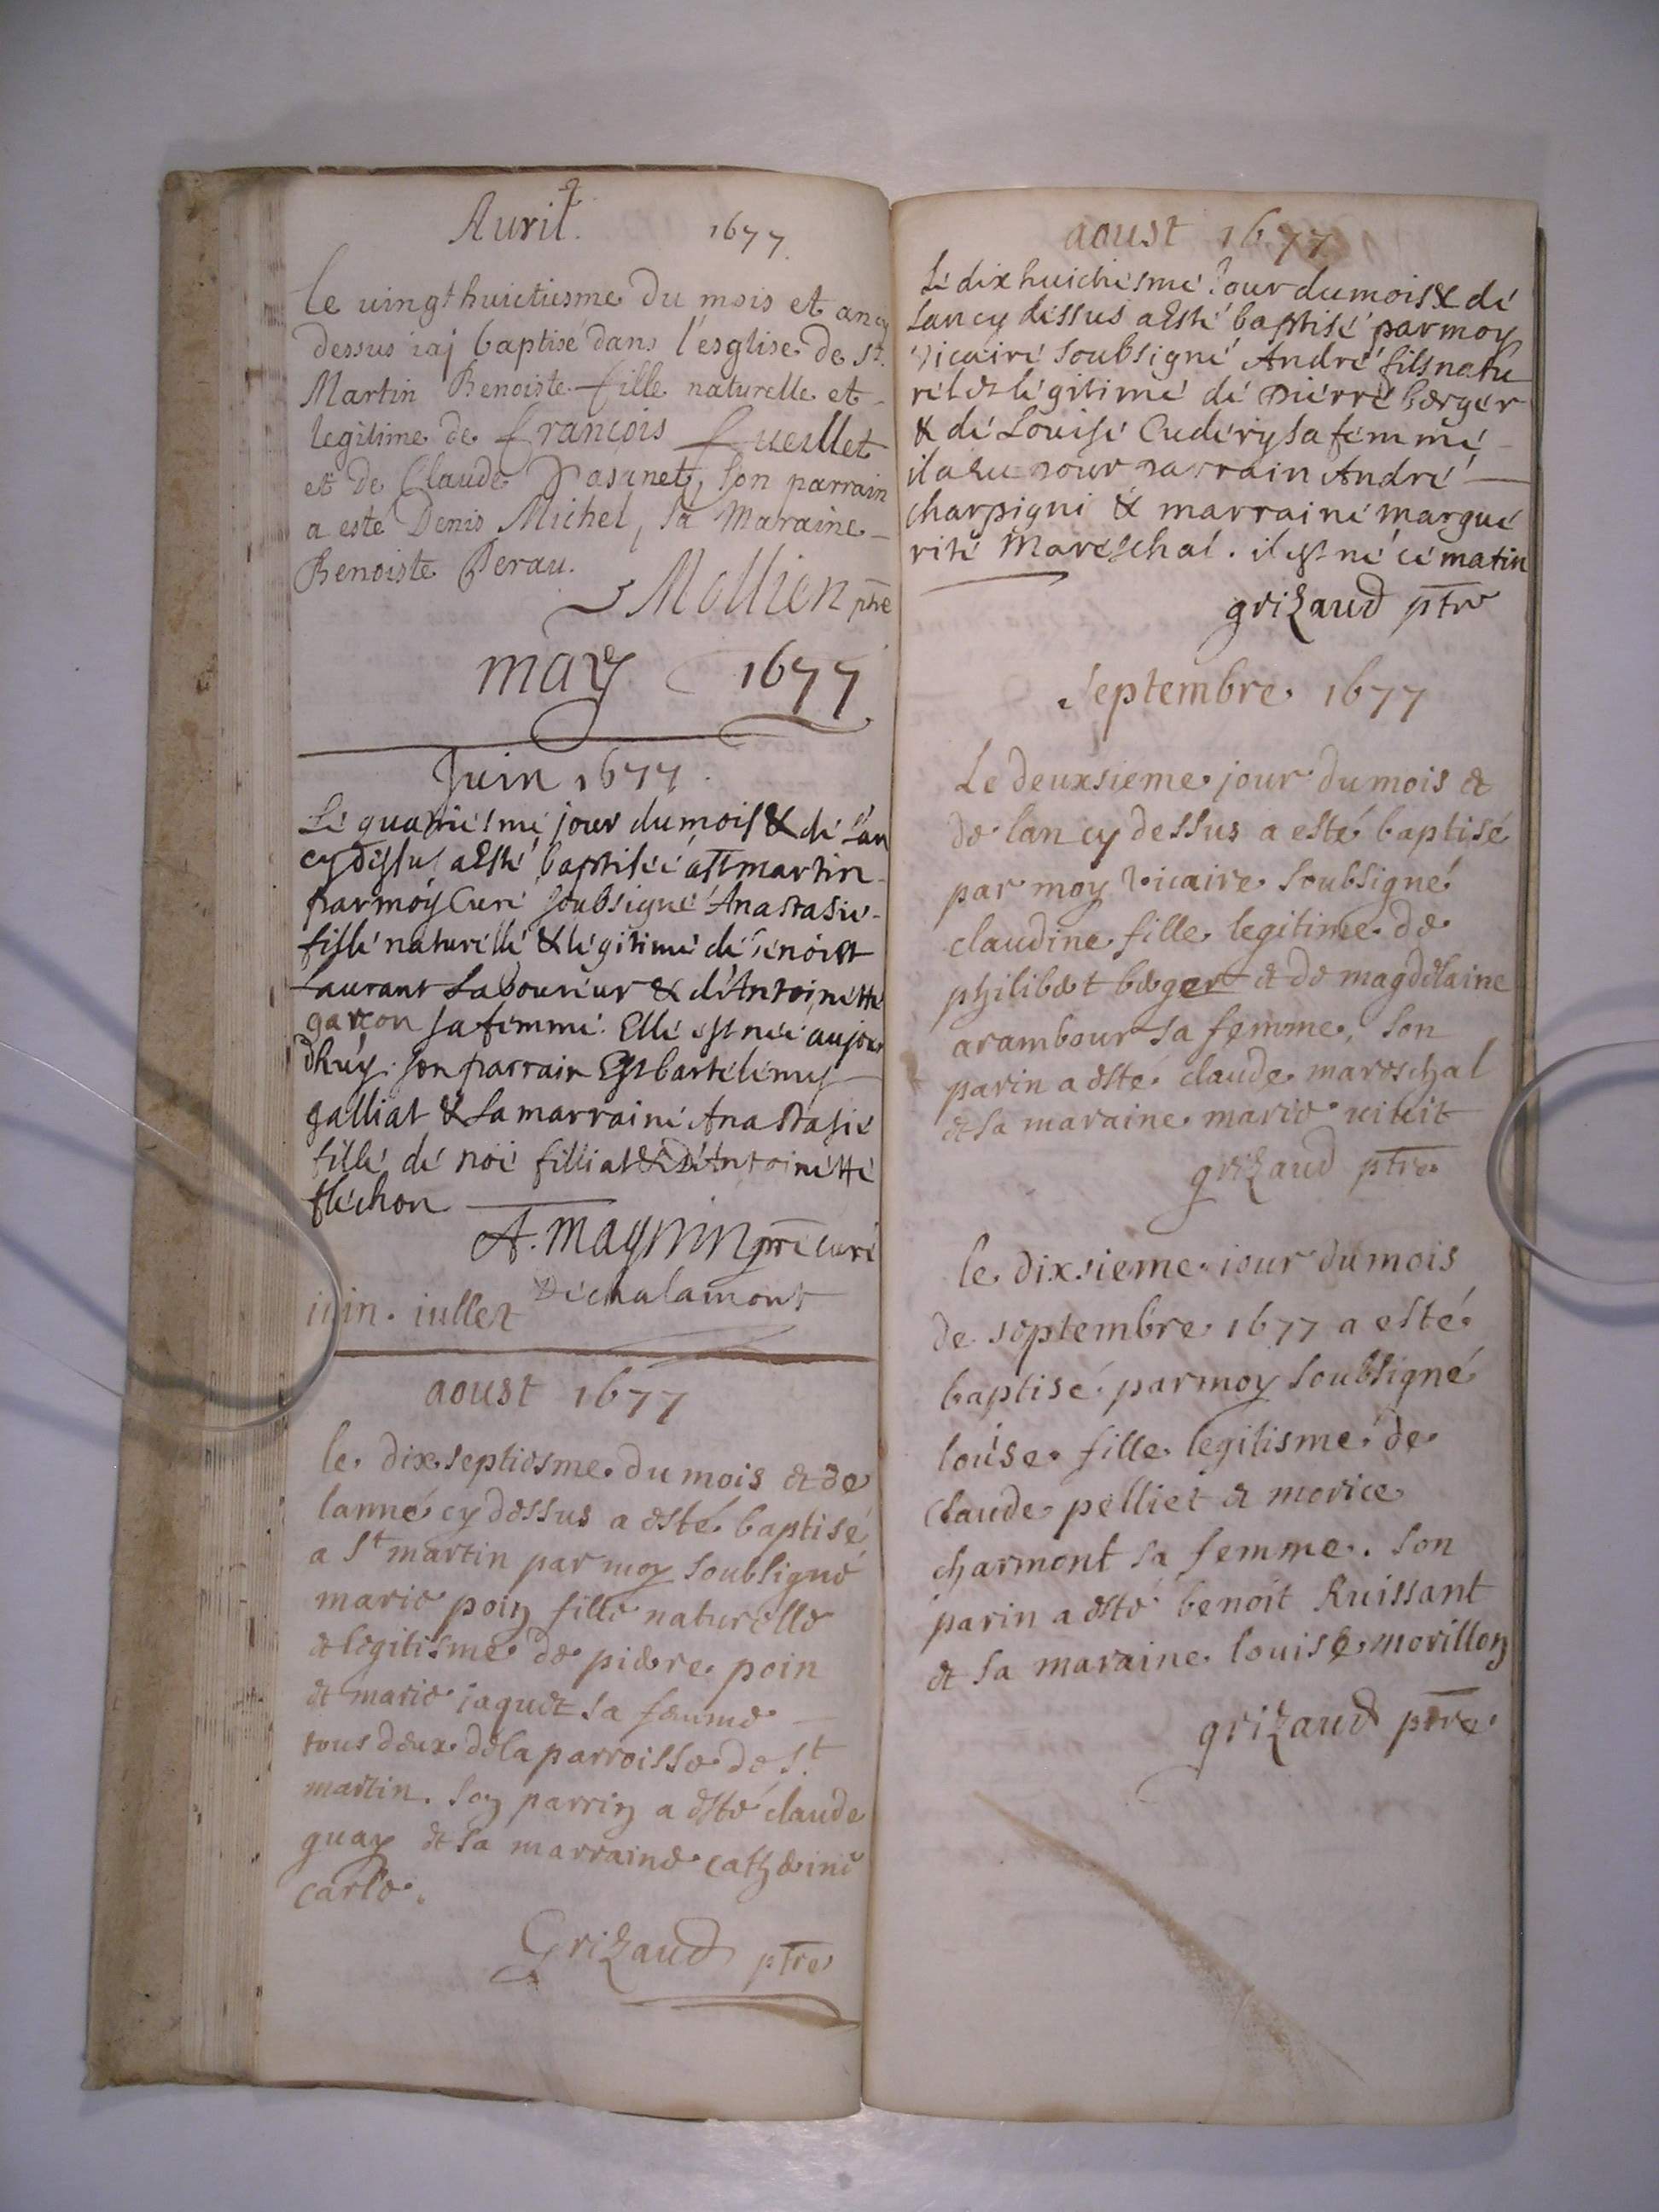 Auril. 1677.
le uingt huictiesme du mois et an cy
dessus iaj baptisé dans l'esglise de St.
Martin Benoiste fille naturelle et
legitime de francois fueillet
et de Claude Pasinet, son parrain
a esté Denis Michel, sa Maraine
Benoiste Perau.
Mollien ptre
may 1677
Juin 1677.
Le quatriesme jour du mois & de l'an
cy dessus a Esté baptiseé a St martin
par moy Curé soubsigné Anastasie
fille naturelle & legitime de benoist
Laurant Laboureur & d'Antoinette
garçon sa femme. Elle est neé aujour
dhuy. son parrain Est bartelemy
galliat & sa marraine Anastasie
fille de noé filliat & D'Antoinette
flechon
A. Magnin ptre curé
De chalamont
iuin. iullet
aoust 1677
le dixseptiesme du mois et de
lanné cy dessus a esté baptisé
a St martin par moy soubsigné
marie poin fille naturelle
et legitisme de pierre poin
et marie iaquet sa femme
tous deux de la parroisse de St.
martin. son parrin a esté claude
guay et sa marraine catherine
carle.
Grizaud ptre
aoust 1677
Le dix huichiesme Jour du mois & de
Lan cy dessus a Esté baptisé par moy
vicaire soubsigné André fils natu
rel et légitime de Pierre berger
& de Louise Cudery sa femme
il a eu pour parrain André
charpigni & marraine margue
rite Mareschal. il est né ce matin
grizaud ptre
Septembre 1677
Le deuxsieme jour du mois et
de lan cy dessus a esté baptisé
par moy vicaire soubsigné
claudine fille legitime de
philibert berger et de magdelaine
arambour sa femme, son
parin a esté claude mareschal
et sa maraine marie
grizaud ptre
le dixsieme iour du mois
de septembre 1677 a esté
baptisé par moy soubsigné
louise fille legitisme de
Claude pelliet et morice
charmont sa femme. son
parin a esté benoit Ruissant
et sa maraine louise morillon
grizaud ptre